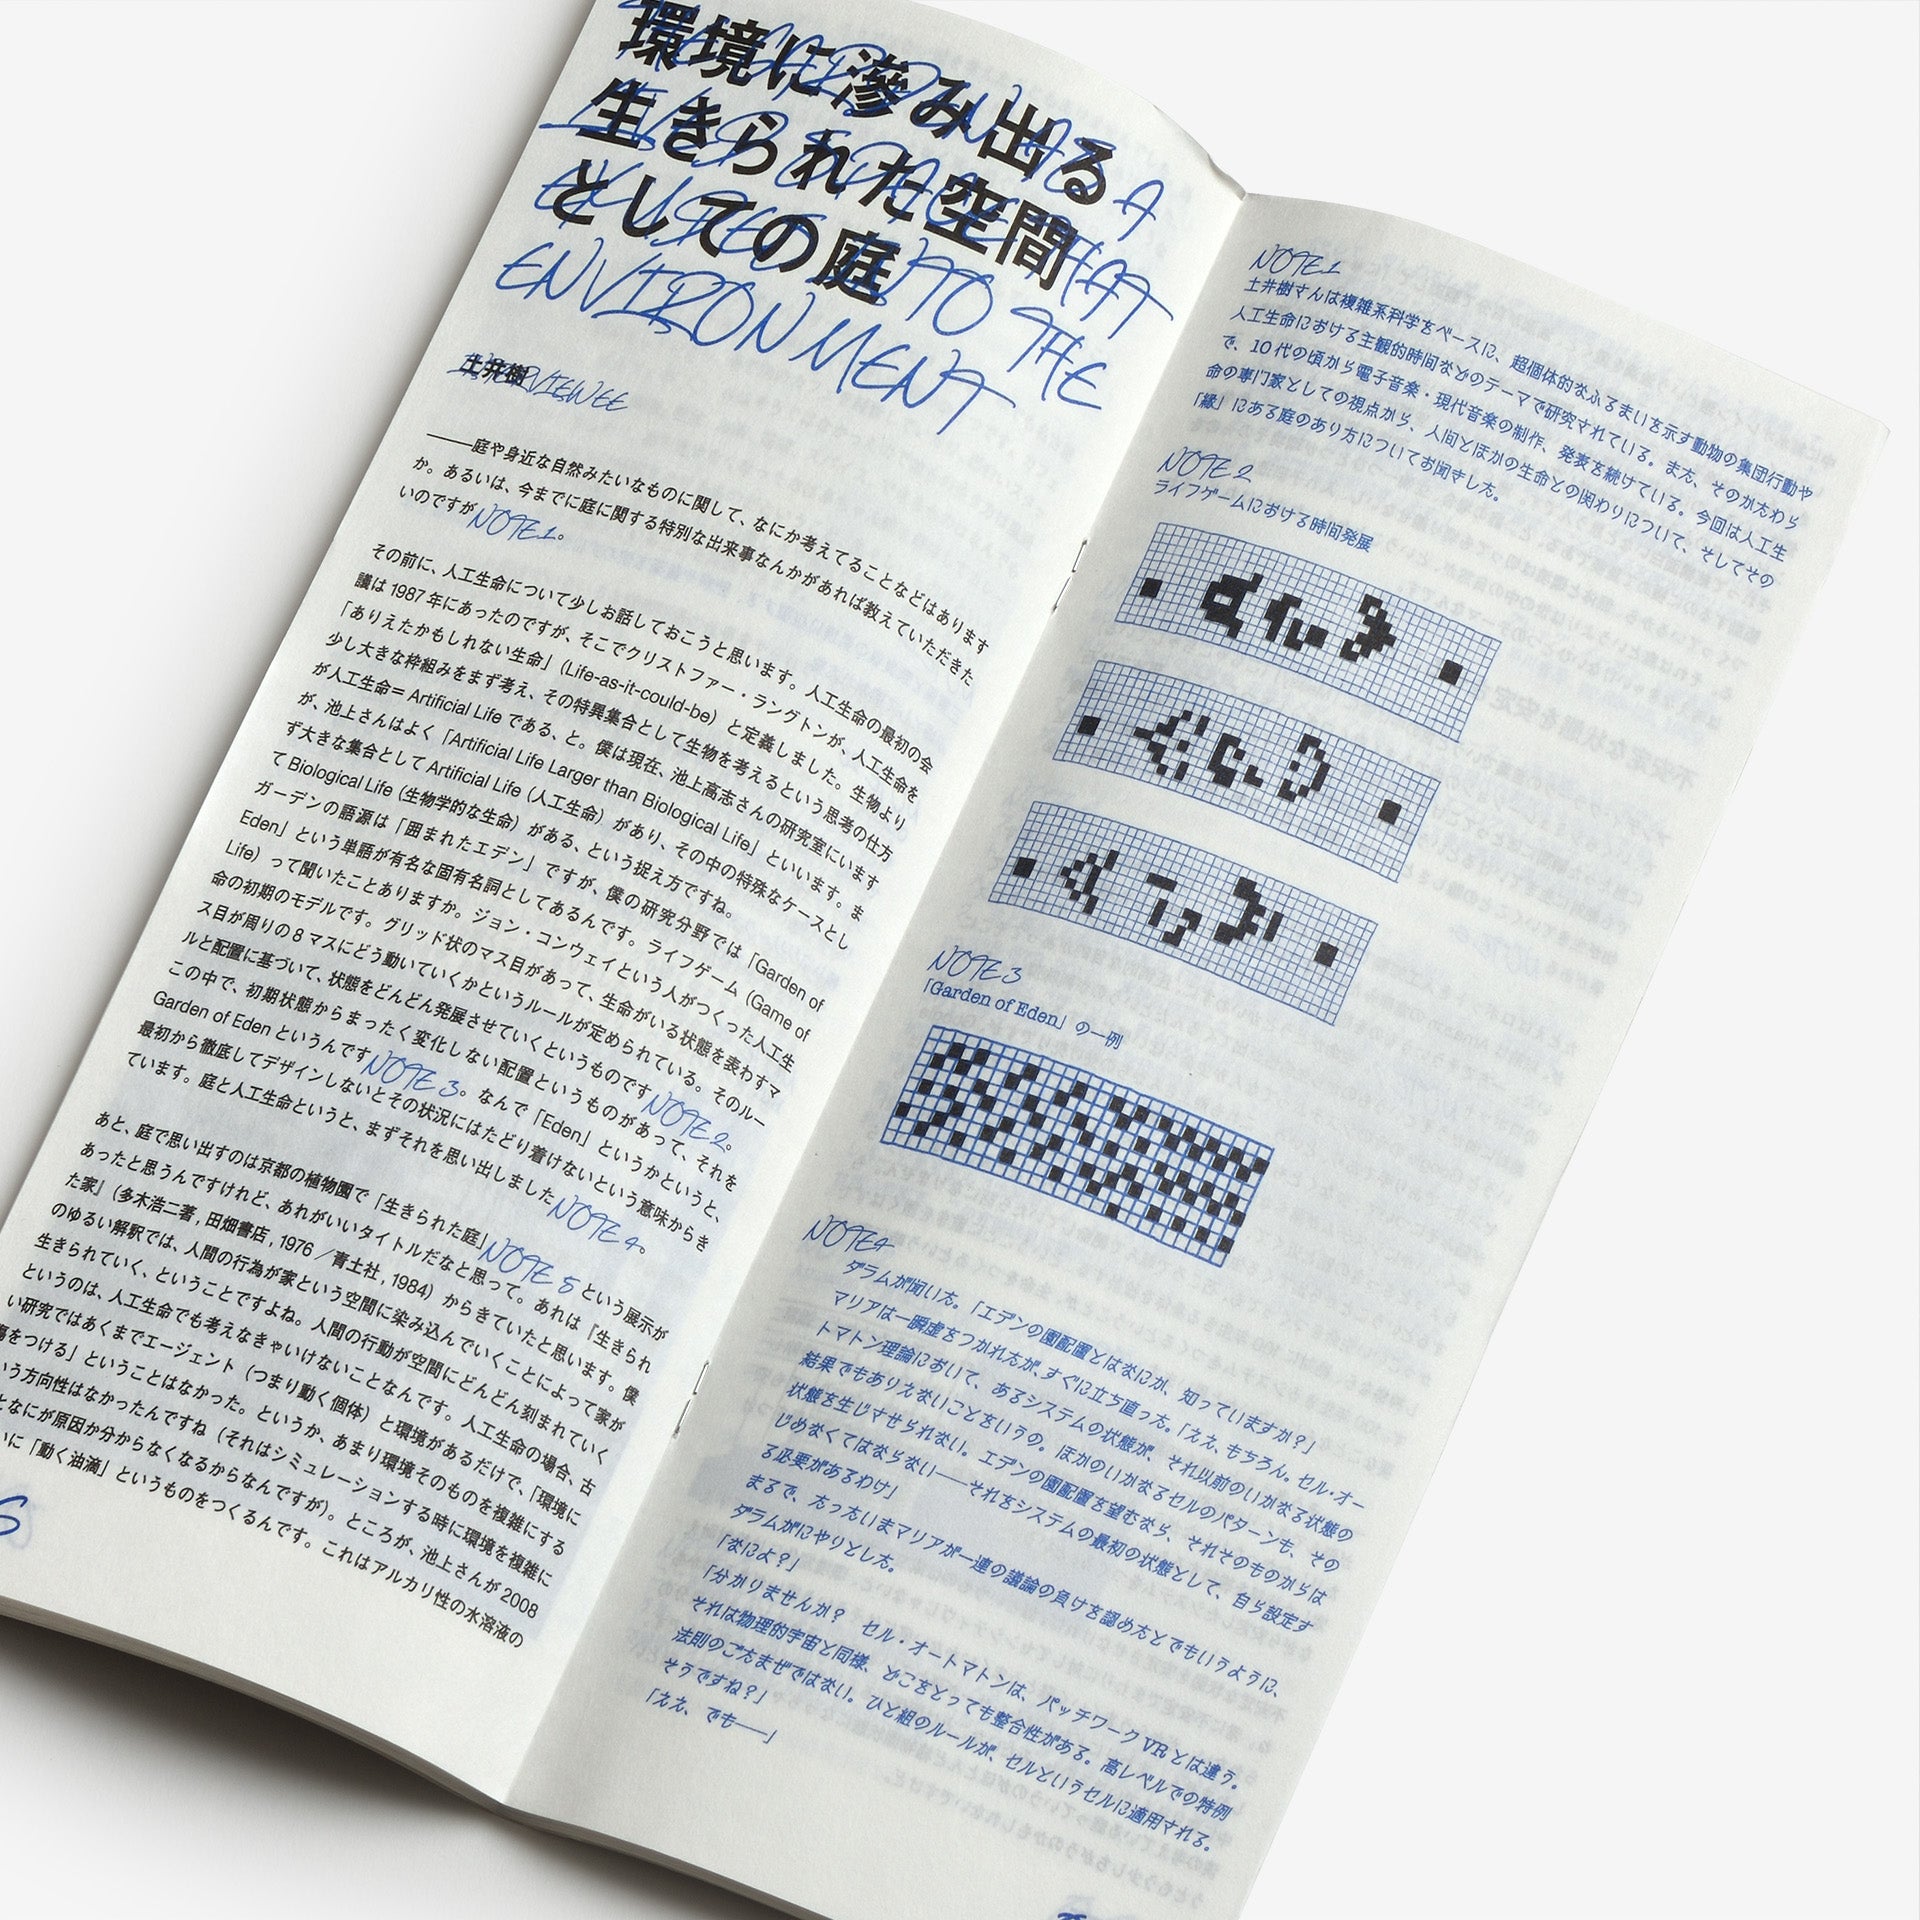 環境に滲み出る
生きられた空間
としての庭
A
THAT
INTO THE
ENVIRONMENT
土井樹
INTERVIEWEE
――庭や身近な自然みたいなものに関して、なにか考えてることなどはあります
か。あるいは、今までに庭に関する特別な出来事なんかがあれば教えていただきた
いのですがNOTE1。
その前に、人工生命について少しお話しておこうと思います。人工生命の最初の会
議は1987年にあったのですが、そこでクリストファー・ラングトンが、人工生命を
「ありえたかもしれない生命」(Life-as-it-could-be)と定義しました。生物より
少し大きな枠組みをまず考え、その特異集合として生物を考えるという思考の仕方
が人工生命=Artificial Lifeである、と。僕は現在、池上高志さんの研究室にいます
が、池上さんはよく「Artificial Life Larger than Biological Life」といいます。ま
ず大きな集合としてArtificial Life(人工生命)があり、その中の特殊なケースとし
てBiological Life(生物学的な生命)がある、という捉え方ですね。
ガーデンの語源は「囲まれたエデン」ですが、僕の研究分野では「Garden of
Eden」という単語が有名な固有名詞としてあるんです。ライフゲーム(Game of
Life)って聞いたことありますか。ジョン・コンウェイという人がつくった人工生
命の初期のモデルです。グリッド状のマス目があって、生命がいる状態を表わすマ
ス目が周りの8マスにどう動いていくかというルールが定められている。そのルー
ルと配置に基づいて、状態をどんどん発展させていくというものですNOTE2。
この中で、初期状態からまったく変化しない配置というものがあって、それを
Garden of EdenというんですNOTE3。なんで「Eden」というかというと、
最初から徹底してデザインしないとその状況にはたどり着けないという意味からき
ています。庭と人工生命というと、まずそれを思い出しましたNOTE4。
あと、庭で思い出すのは京都の植物園で「生きられた庭」NOTE5という展示が
あったと思うんですけれど、あれがいいタイトルだなと思って。あれは『生きられ
た家』(多木浩二著,田畑書店,1976/青土社,1984)からきていたと思います。僕
のゆるい解釈では、人間の行為が家という空間に染み込んでいくことによって家が
生きられていく、ということですよね。人間の行動が空間にどんどん刻まれていく
というのは、人工生命でも考えなきゃいけないことなんです。人工生命の場合、古
い研究ではあくまでエージェント(つまり動く個体)と環境があるだけで、「環境に
傷をつける」ということはなかった。というか、あまり環境そのものを複雑にする
いう方向性はなかったんですね(それはシミュレーションする時に環境を複雑に
となにが原因か分からなくなるからなんですが)。ところが、池上さんが2008
に「動く油滴」というものをつくるんです。これはアルカリ性の水溶液の
NOTE1
土井樹さんは複雑系科学をベースに、超個体的なふるまいを示す動物の集団行動や
人工生命における主観的時間などのテーマで研究されている。また、そのかたわら
で、10代の頃から電子音楽・現代音楽の制作、発表を続けている。今回は人工生
命の専門家としての視点から、人間とほかの生命との関わりについて、そしてその
「縁」にある庭のあり方についてお聞きした。
NOTE2
ライフゲームにおける時間発展
NOTE3
「Garden of Eden」の一例
NOTE4
ダラムが聞いた。「エデンの園配置とはなにか、知っていますか?」
マリアは一瞬虚をつかれたが、すぐに立ち直った。「ええ、もちろん。セル・オー
トマトン理論において、あるシステムの状態が、それ以前のいかなる状態の
結果でもありえないことをいうの。ほかのいかなるセルのパターンも、その
状態を生じさせられない。エデンの園配置を望むなら、それそのものからは
じめなくてはならない――それをシステムの最初の状態として、自ら設定す
る必要があるわけ」
まるで、たったいまマリアが一連の議論の負けを認めたとでもいうように、
ダラムがにやりとした。
「なによ?」
「分かりませんか? セル・オートマトンは、パッチワークVRとは違う。
それは物理的宇宙と同様、どこをとっても整合性がある。高レベルでの特例
法則のごたまぜではない。ひと組のルールが、セルというセルに適用される。
そうですね?」
「ええ、でも――」